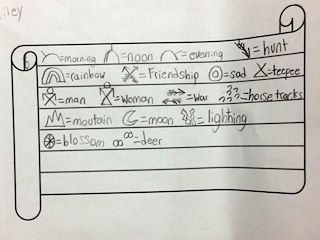 iley
=morning =noon =evening =hunt
=rainbow =Friendship =sad =teepee
=man =Woman =war =horse tracks
=moutain =moon =lighting
=blossom =deer